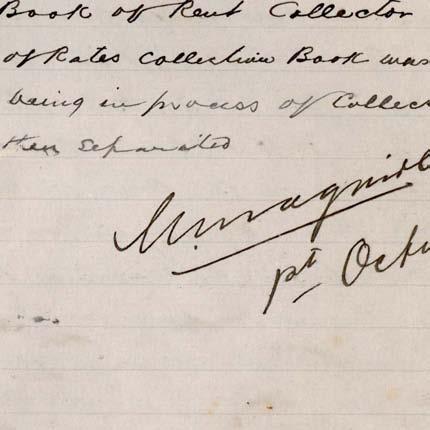 Book of Rent Collector
of Rates Collection Book was
being in process of Collec
then separated
pt Octo